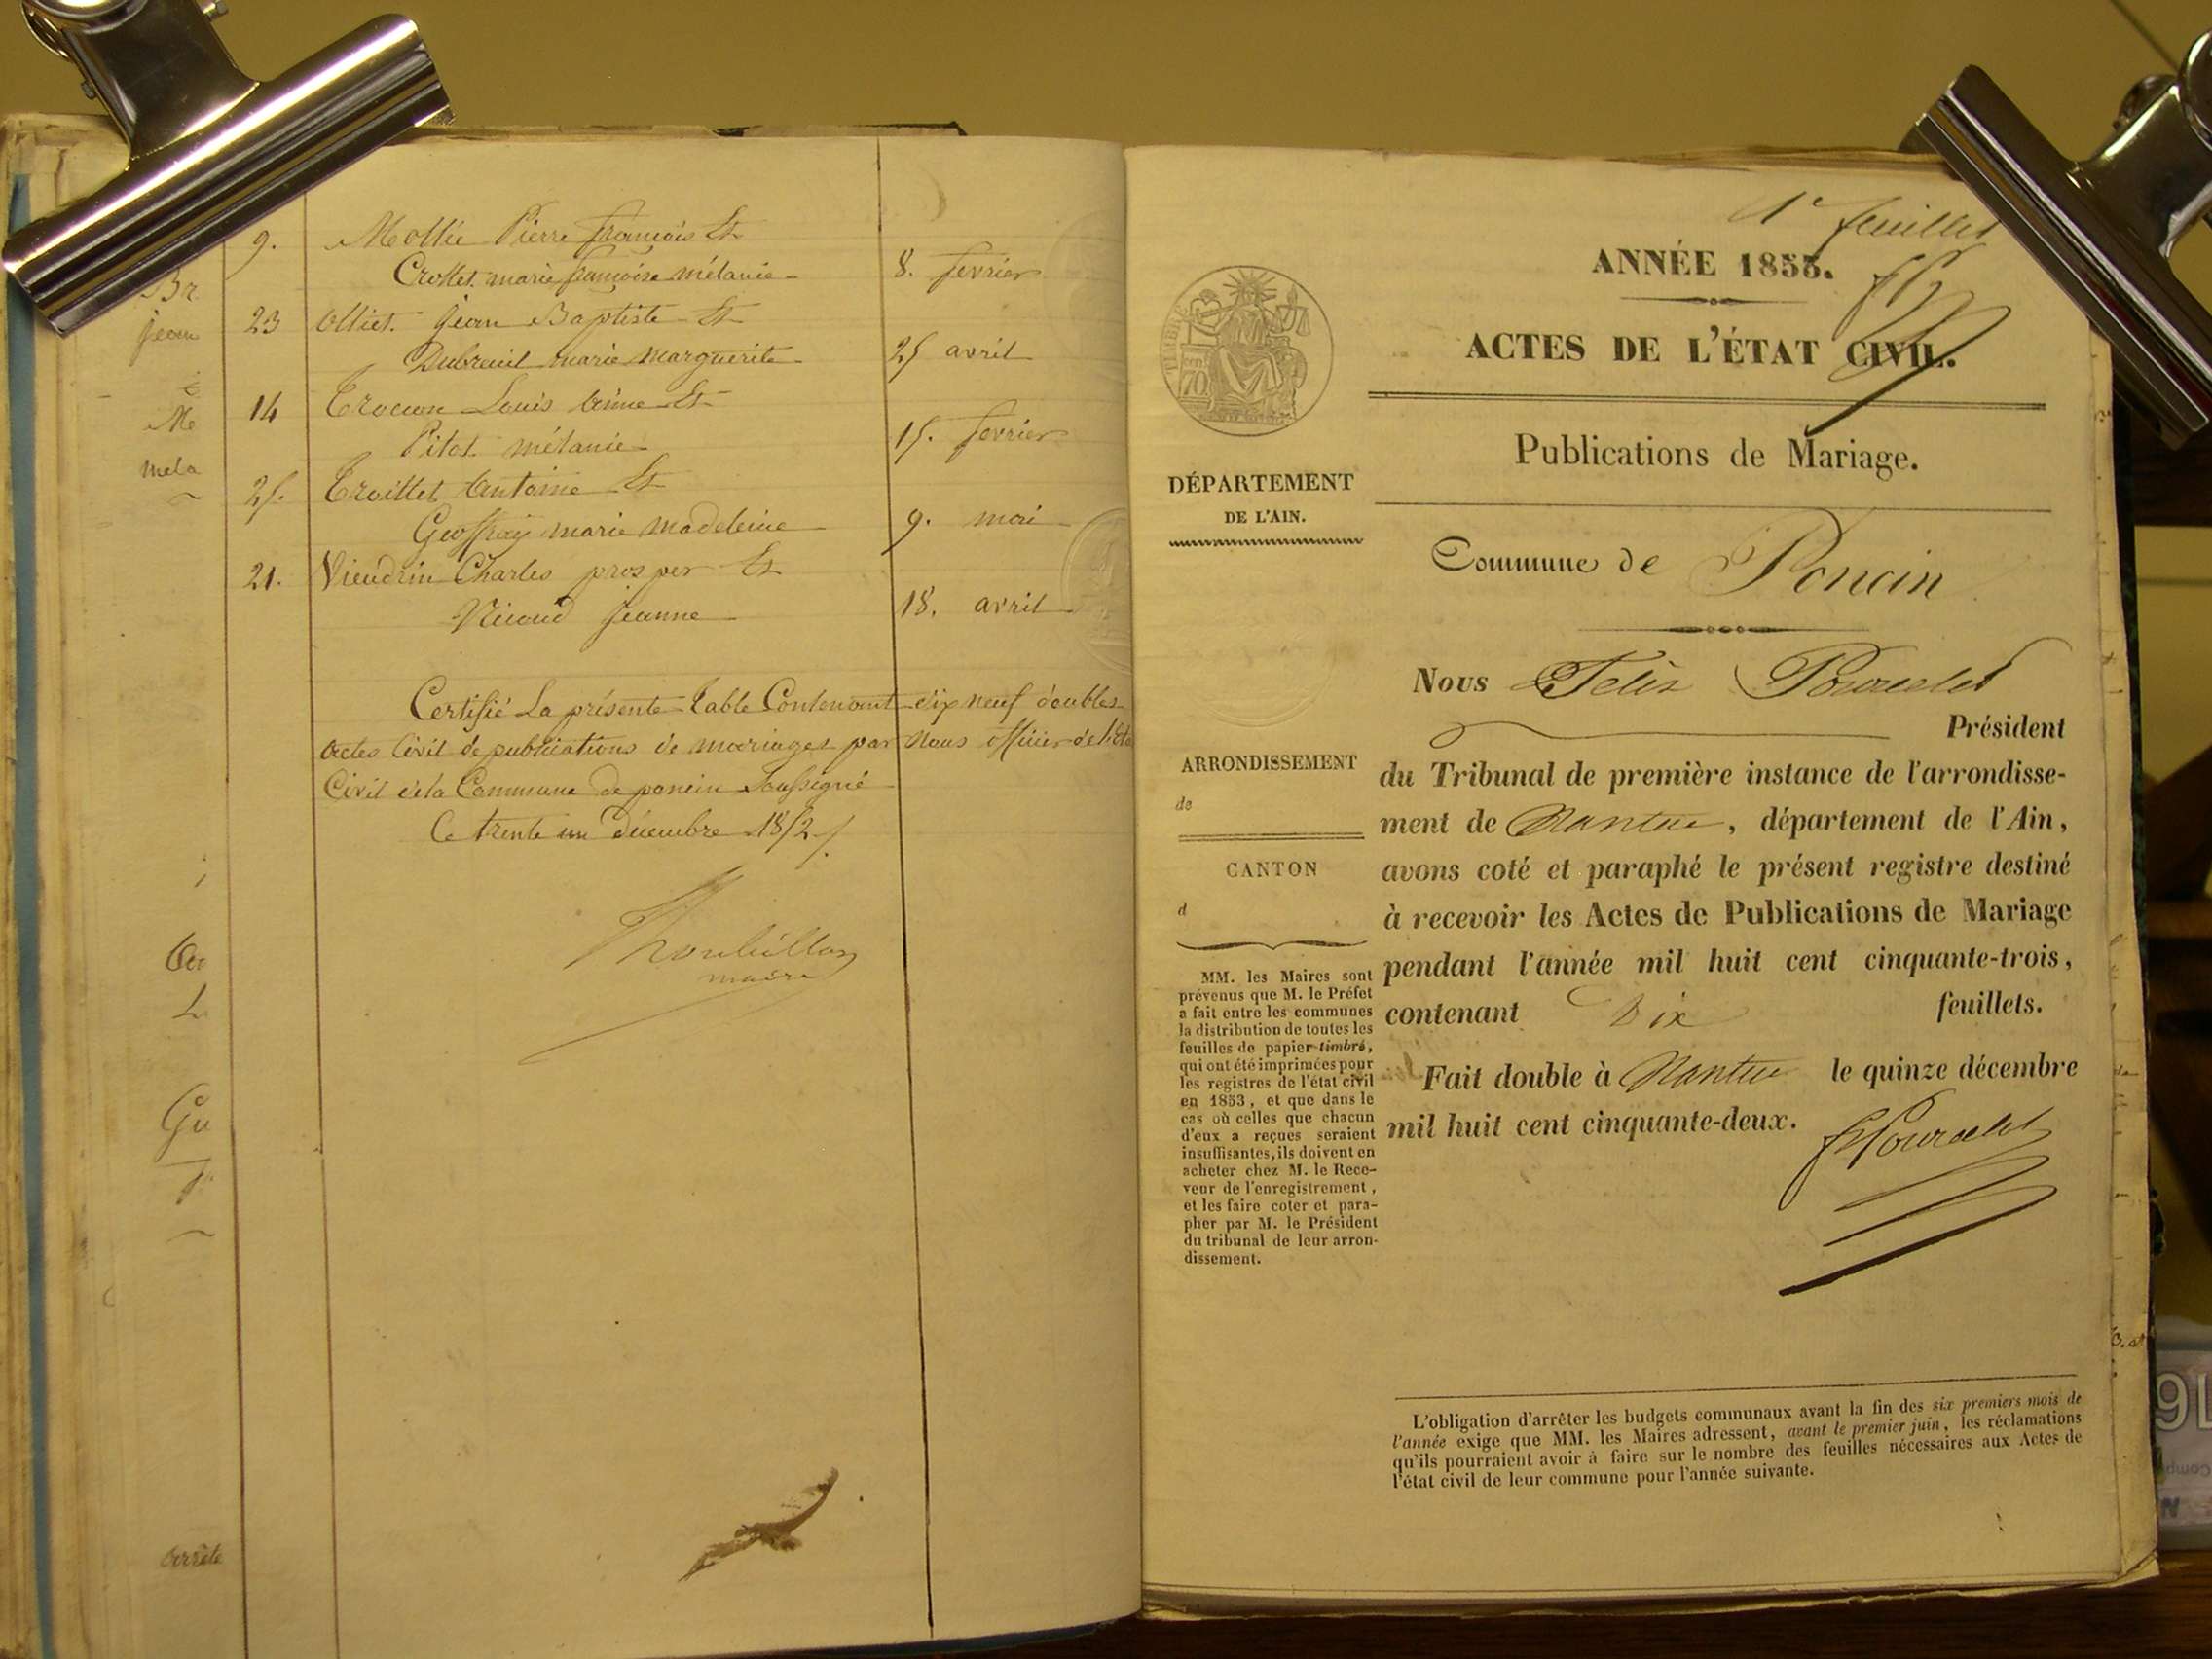 9. Mollie Pierre françois Et
Crollet marie françoise mélanie 8. fevrier
23 Olliet Jean Baptiste Et
Dubreuil marie marguerite 25 avril
14 Louis Et
Pitot mélanie 15. fevrier
25. Troillet Antoine Et
Geoffray marie madeleine 9. mai
21. Vieudrin Charles prosper Et
Nicoud jeanne 18. avril
Certifié La présente Table Contenant dix neuf doubles
actes Civil de publications de mariages par Nous officier de l'Eta
Civil de la Commune de poncin Soussigné
Ce trente un Décembre 1852.
maire
Br
jean
Me
mela
L
Gu
arrête
1er feuillet
ANNÉE 1853.
ACTES DE L'ÉTAT CIVIL.
Publications de Mariage.
TIMBRE
70
DÉPARTEMENT
DE L'AIN.
Commune de Poncin
Nous Felix Pourcelot
Président
du Tribunal de première instance de l'arrondisse-
ment de Nantua, département de l'Ain,
avons coté et paraphé le présent registre destiné
à recevoir les Actes de Publications de Mariage
pendant l'année mil huit cent cinquante-trois,
contenant Dix feuillets.
Fait double à Nantua le quinze décembre
mil huit cent cinquante-deux.
FPourcelot
ARRONDISSEMENT
de
CANTON
d
MM. les Maires sont
prévenus que M. le Préfet
a fait entre les communes
la distribution de toutes les
feuilles de papier timbré,
qui ont été imprimées pour
les registres de l'état civil
en 1853, et que dans le
cas où celles que chacun
d'eux a reçues seraient
insuffisantes, ils doivent en
acheter chez M. le Rece-
veur de l'enregistrement,
et les faire coter et para-
pher par M. le Président
du tribunal de leur arron-
dissement.
L'obligation d'arrêter les budgets communaux avant la fin des six premiers mois de
l'année exige que MM. les Maires adressent, avant le premier juin, les réclamations
qu'ils pourraient avoir à faire sur le nombre des feuilles nécessaires aux Actes de
l'état civil de leur commune pour l'année suivante.